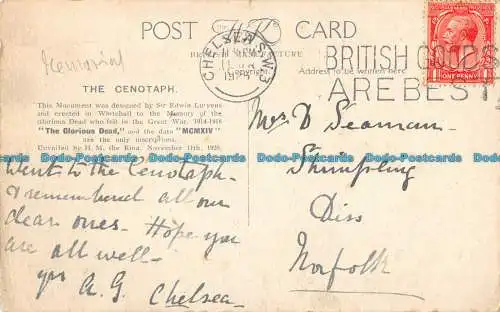 POST CARD
BRITISH MANUFACTURE
CHELSEA S.W.3
BRITISH GOODS
ARE BEST
ONE PENNY
Address to be written here
Memorial
THE CENOTAPH.
This Monument was designed by Sir Edwin Lutyens
and erected in Whitehall to the Memory of the
Glorious Dead who fell in the Great War. 1914-1918
"The Glorious Dead," and the date "MCMXIV"
are the only inscriptions.
Unveiled by H. M. the King, November 11th, 1920.
Went to the Cenotaph.
I remembered all our
dear ones. Hope you
are all well -
yrs A. G. Chelsea.
Mrs D Seaman.
Shimpling
Diss
Norfolk
Bado-Postcards www.bado-shop.com